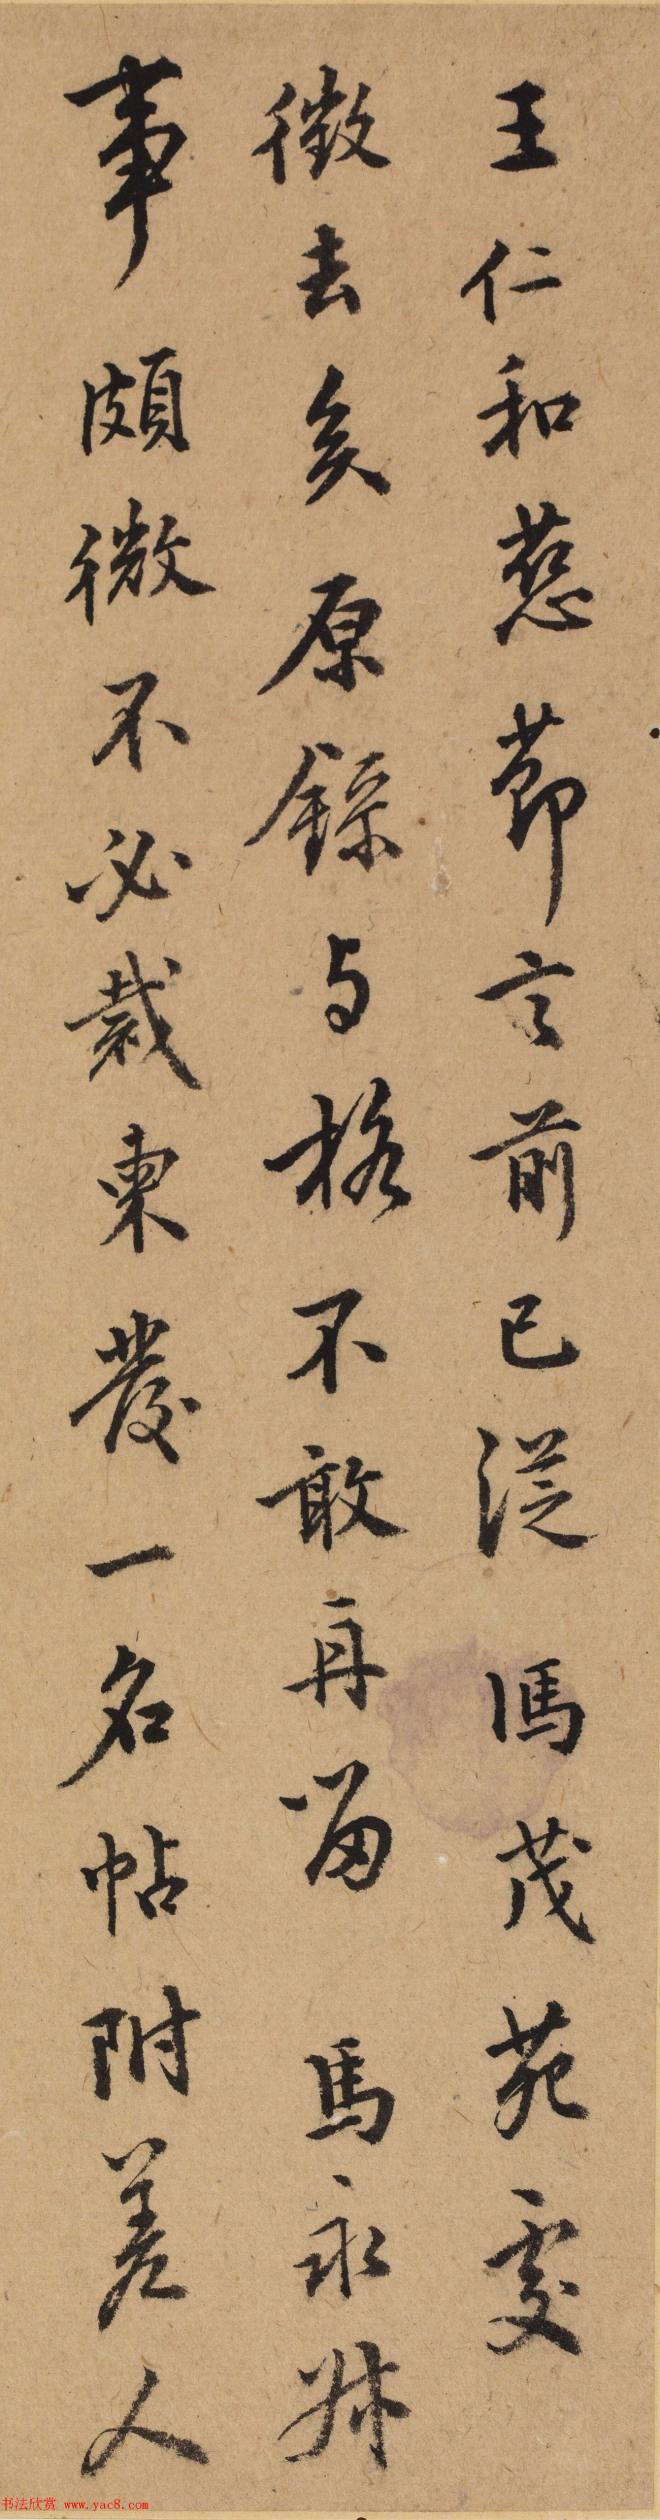 王仁和慈節言前已從馮茂苑處
徵去矣原録与格不敢再留馬永升
事頗微不必裁柬發一名帖附差人
书法欣赏 www.yac8.com